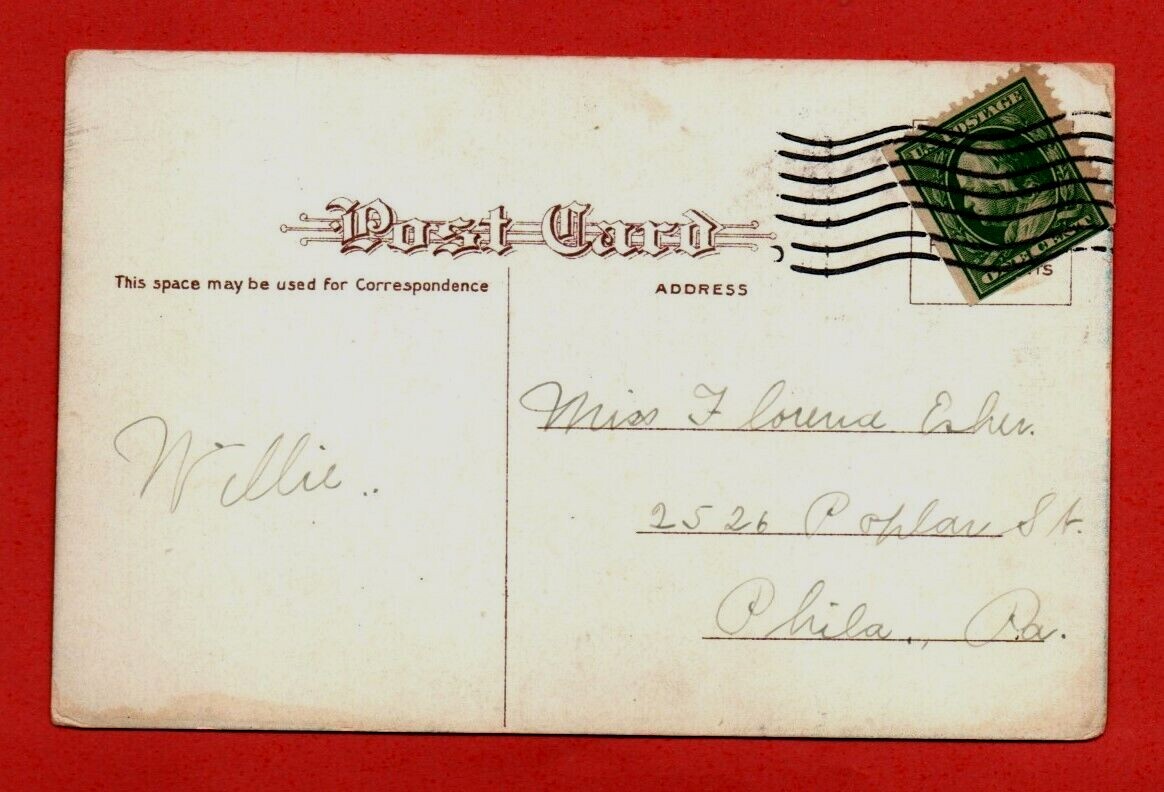 U.S. POSTAGE
ONE CENT
Post Card
This space may be used for Correspondence
ADDRESS
Willie..
Miss Florena Esher.
2526 Poplar St.
Phila., Pa.